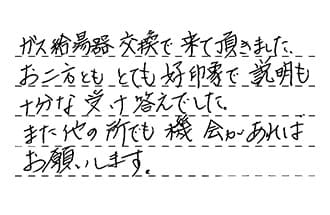 ガス給湯器交換で来て頂きました。
お二方とも とても好印象で説明も
十分な受け答えでした。
また他の所でも機会があれば
お願いします。